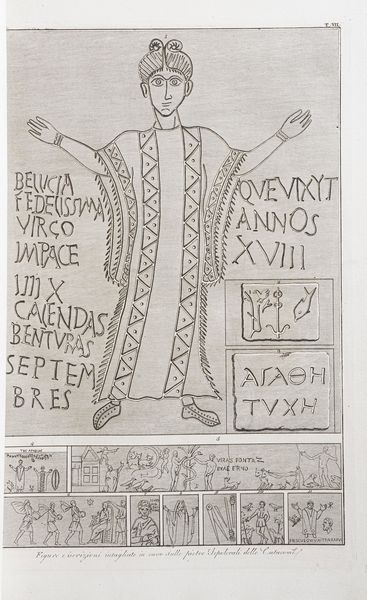 T. VII.
BELLICIA
FEDELISSIMA
VIRGO
IMPACE
IIII X
CALENDAS
BENTVRAS
SEPTEM
BRES
QVE VIXYT
ANNOS
XVIII
ΑΓΑΘΗ
ΤΥΧΗ
Figure e iscrizioni intagliate in cavo sulle pietre Sepolcrali delle Catacombe